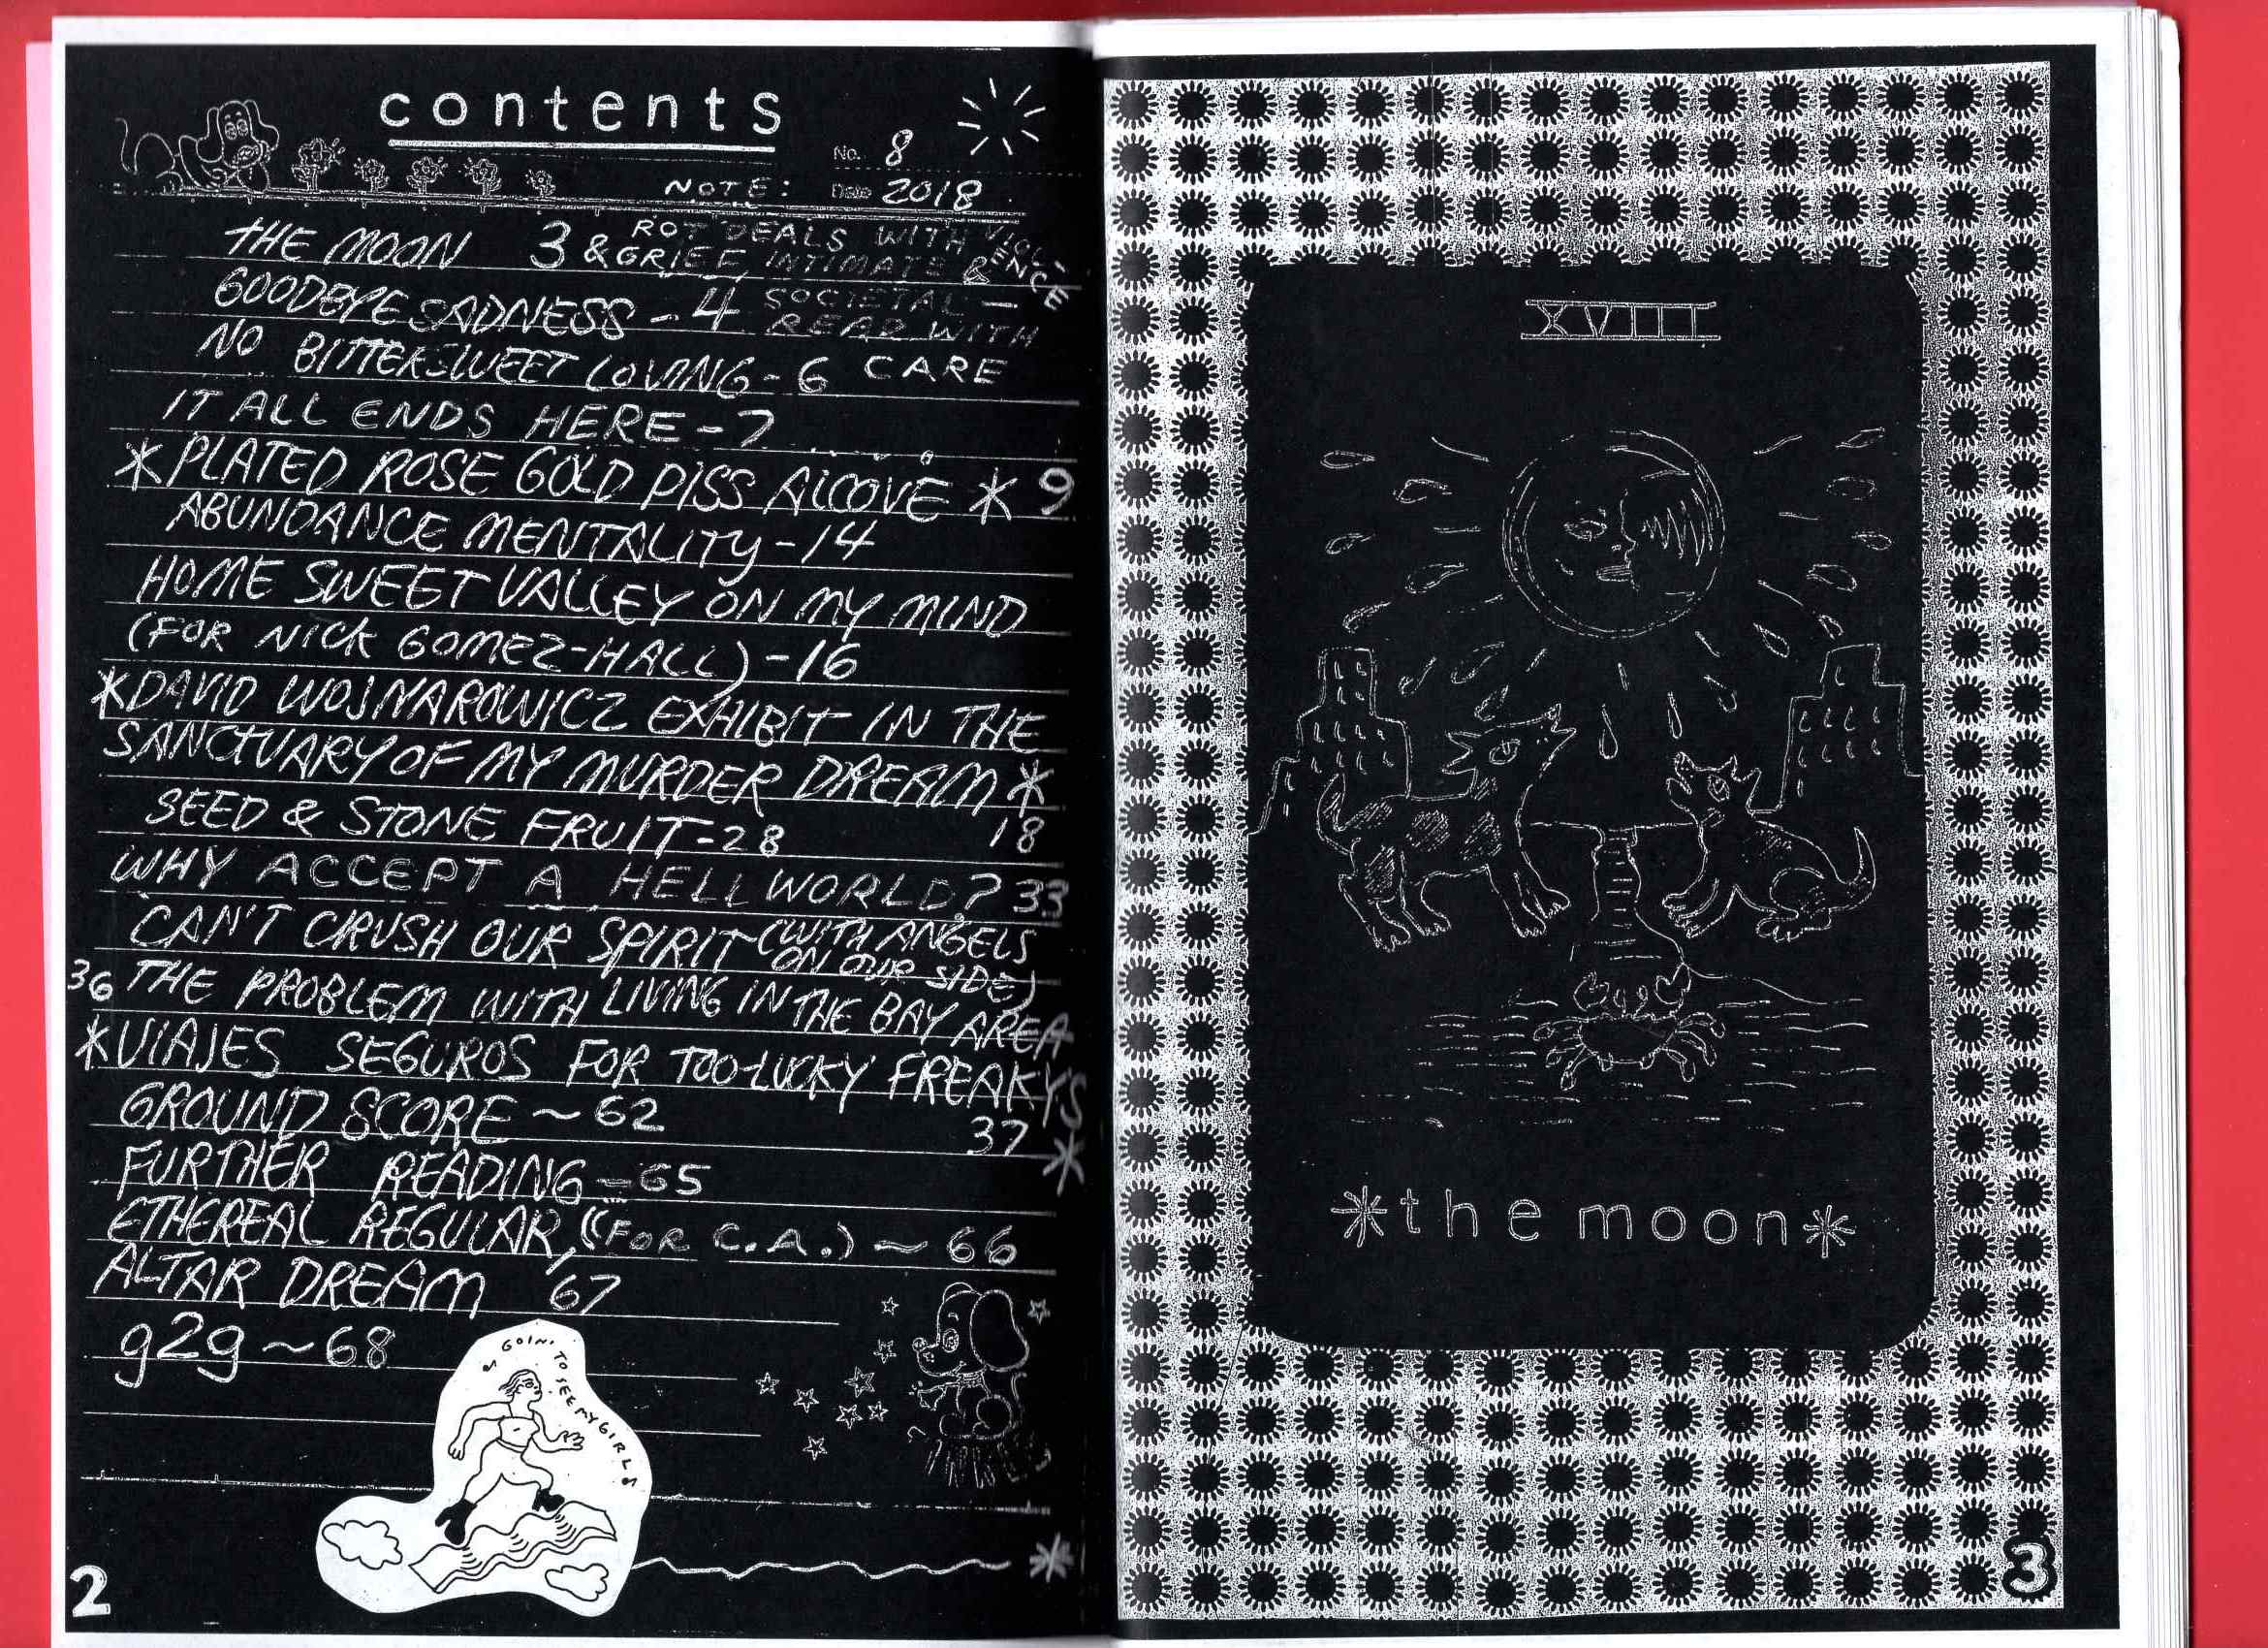 contents
No. 8
NOTE: Date 2018
THE MOON 3
ROT DEALS WITH VIOLENCE
& GRIEF, INTIMATE &
SOCIETAL —
READ WITH
CARE
GOODBYE SADNESS - 4
NO BITTERSWEET LOVING - 6
IT ALL ENDS HERE - 7
*PLATED ROSE GOLD PISS ALCOVE * 9
ABUNDANCE MENTALITY - 14
HOME SWEET VALLEY ON MY MIND
(FOR NICK GOMEZ-HALL) - 16
*DAVID WOJNAROWICZ EXHIBIT IN THE
SANCTUARY OF MY MURDER DREAM *
18
SEED & STONE FRUIT - 28
WHY ACCEPT A HELL WORLD? 33
CAN'T CRUSH OUR SPIRIT (WITH ANGELS
ON OUR SIDE)
36 THE PROBLEM WITH LIVING IN THE BAY AREA
*VIAJES SEGUROS FOR TOO-LUCKY FREAKYS
37 *
GROUND SCORE ~ 62
FURTHER READING - 65
ETHEREAL REGULAR, (FOR C.A.) ~ 66
ALTAR DREAM 67
g2g ~ 68
♪ GOIN' TO SEE MY GIRL ♪
*
2
XVIII
*the moon*
3